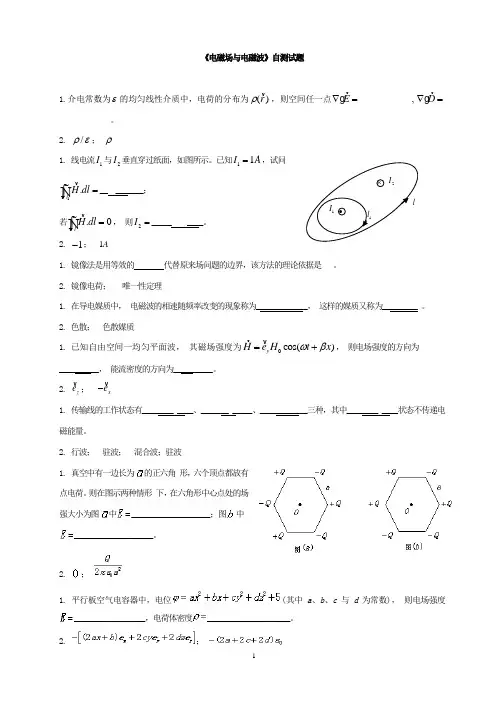 《电磁场与电磁波》自测试题
1.介电常数为ε的均匀线性介质中，电荷的分布为ρ(r)，则空间任一点∇gE = ____________ , ∇gD =
_____________。
2. ρ/ε； ρ
1. 线电流I₁与I₂垂直穿过纸面，如图所示。已知I₁ = 1A，试问
∮H.dl = __ _______；
若∮H.dl = 0， 则I₂ = _____ ____。
2. −1； 1A
1. 镜像法是用等效的 _______ 代替原来场问题的边界，该方法的理论依据是___。
2. 镜像电荷； 唯一性定理
1. 在导电媒质中， 电磁波的相速随频率改变的现象称为_____________， 这样的媒质又称为_________ 。
2. 色散； 色散媒质
1. 已知自由空间一均匀平面波， 其磁场强度为H = e_yH₀cos(ωt + βx)， 则电场强度的方向为
__________， 能流密度的方向为__________。
2. e_z； −e_x
1. 传输线的工作状态有________ ____、_______ _____、____________三种，其中________ ____状态不传递电
磁能量。
2. 行波； 驻波； 混合波；驻波
1. 真空中有一边长为a的正六角 形，六个顶点都放有
点电荷。则在图示两种情形 下，在六角形中心点处的场
强大小为图a中E = ____________________；图b 中
E = ____________________。
2. 0； Q/2πε₀a²
1. 平行板空气电容器中，电位φ = ax² + bx + cy² + dz² + 5 (其中 a、b、c 与 d 为常数)， 则电场强度
E = __________________，电荷体密度ρ = _____________________。
2. −[(2ax + b)e_x + 2cye_y + 2dze_z]； −(2a + 2c + 2d)ε₀
I₂
I₁
l₁
l
+Q
−Q
a
−Q
O
+Q
+Q
−Q
图(a)
+Q
−Q
a
+Q
O
−Q
−Q
图(b)
1